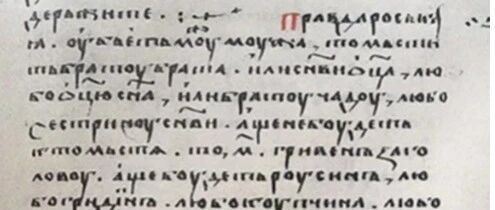 дерьжите . :  Правда роськаı
ꙗ . оубьеть моужь моужа , то мьсти
ть братоу брата . или сн҃ви ѡц҃а , лю
бо ѡц҃ю сн҃а , или братоу чадоу , любо
сестриноу сн҃ви . аще не боудеть
кто мьстѧ . то , м҃ . гривенъ за го
ловоу . аще боудеть роусинъ , лю
бо гридинъ . любо коупчина . любо